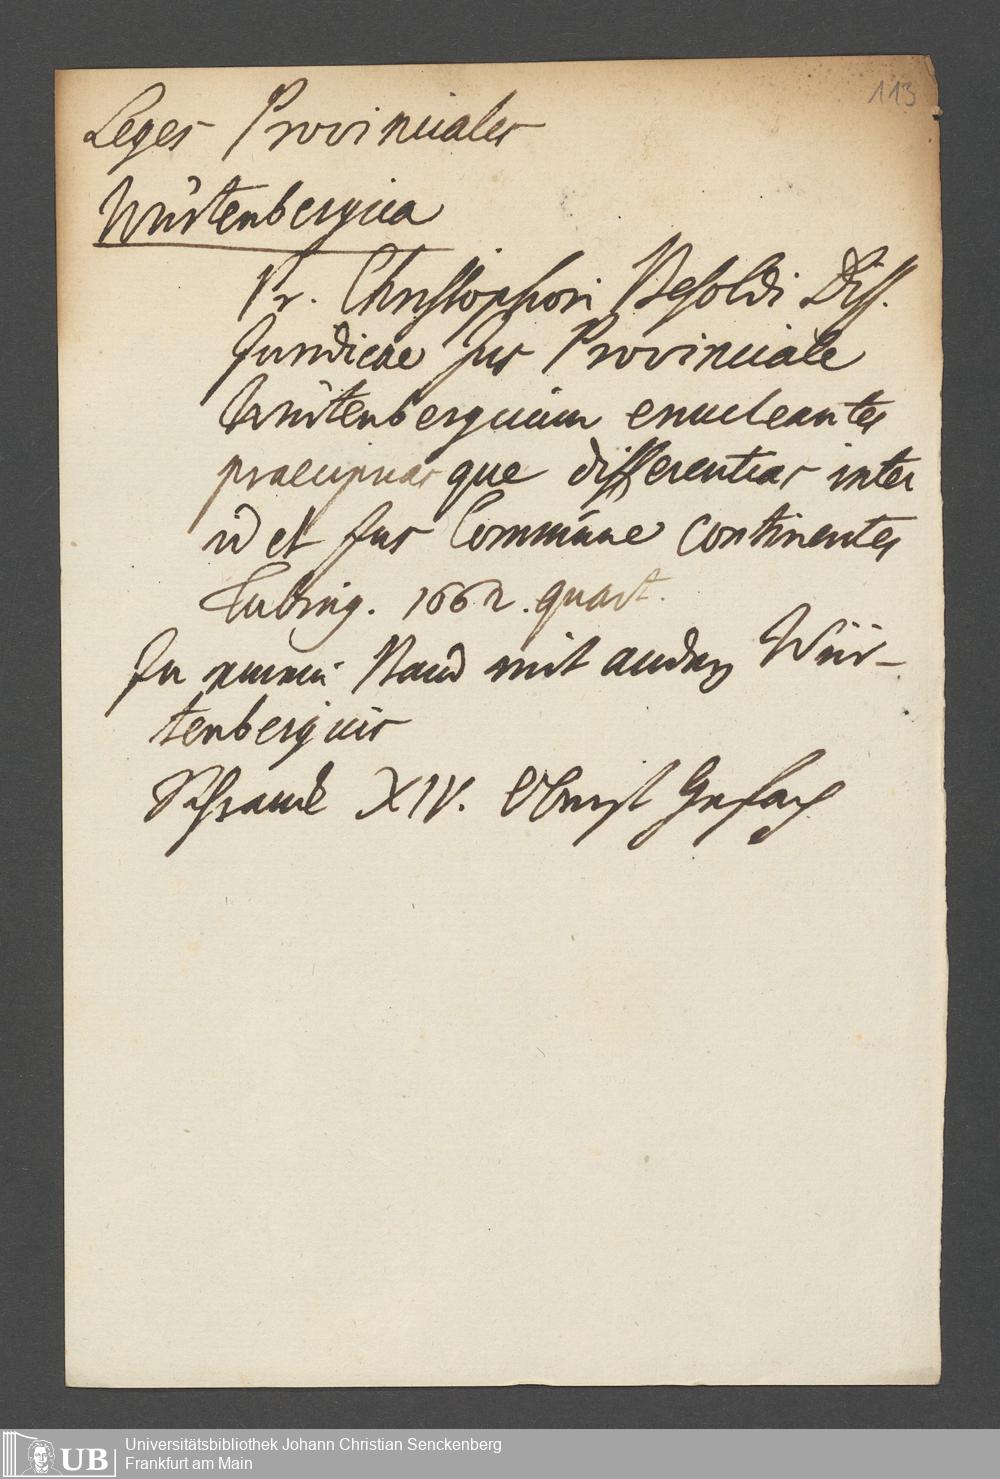 113
Leges Provinciales
Würtenbergica
Pr. Christophori Besoldi Diss.
Juridicae Jus Provinciale
Würtenbergicum enucleantes
praecipuasque differentias inter
id et Jus Commune continentes
Tubing. 1662. quart.
In einem Band mit andern Wür-
tenbergicis
Schrank XIV. Oberst Gefach
UB
Universitätsbibliothek Johann Christian Senckenberg
Frankfurt am Main